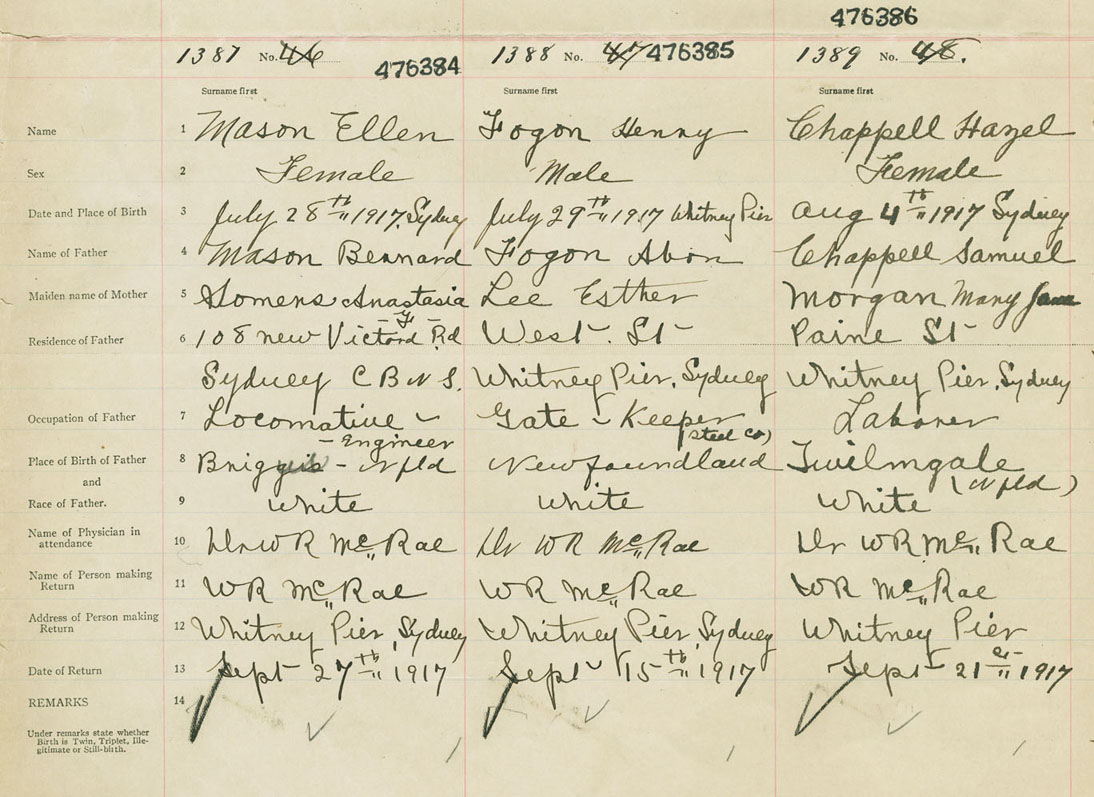 476386
1387 No. 46 476384 1388 No. 47 476385 1389 No. 48.
Surname first Surname first Surname first
Name 1 Mason Ellen Fogon Henry Chappell Hazel
Sex 2 Female Male Female
Date and Place of Birth 3 July 28th 1917, Sydney July 29th 1917 Whitney Pier Aug 4th 1917 Sydney
Name of Father 4 Mason Bernard Fogon Abon Chappell Samuel
Maiden name of Mother 5 Anastasia Lee Esther Morgan Mary Jane
Residence of Father 6 108 new Rd West. St Paine St
Sydney C B N S. Whitney Pier, Sydney Whitney Pier, Sydney
Occupation of Father 7 Locomative - Gate - Keeper Laborer
- Engineer (Steel Co)
Place of Birth of Father 8 - Nfld Newfoundland Twilingale
and (Nfld)
Race of Father. 9 White White White
Name of Physician in
attendance 10 Dr W R McRae Dr WR McRae Dr WR McRae
Name of Person making
Return 11 WR McRae WR McRae WR McRae
Address of Person making
Return 12 Whitney Pier, Sydney Whitney Pier, Sydney Whitney Pier
Date of Return 13 Sept 27th 1917 Sept 15th 1917 Sept 21st 1917
REMARKS 14
Under remarks state whether
Birth is Twin, Triplet, Ille-
gitimate or Still-birth.